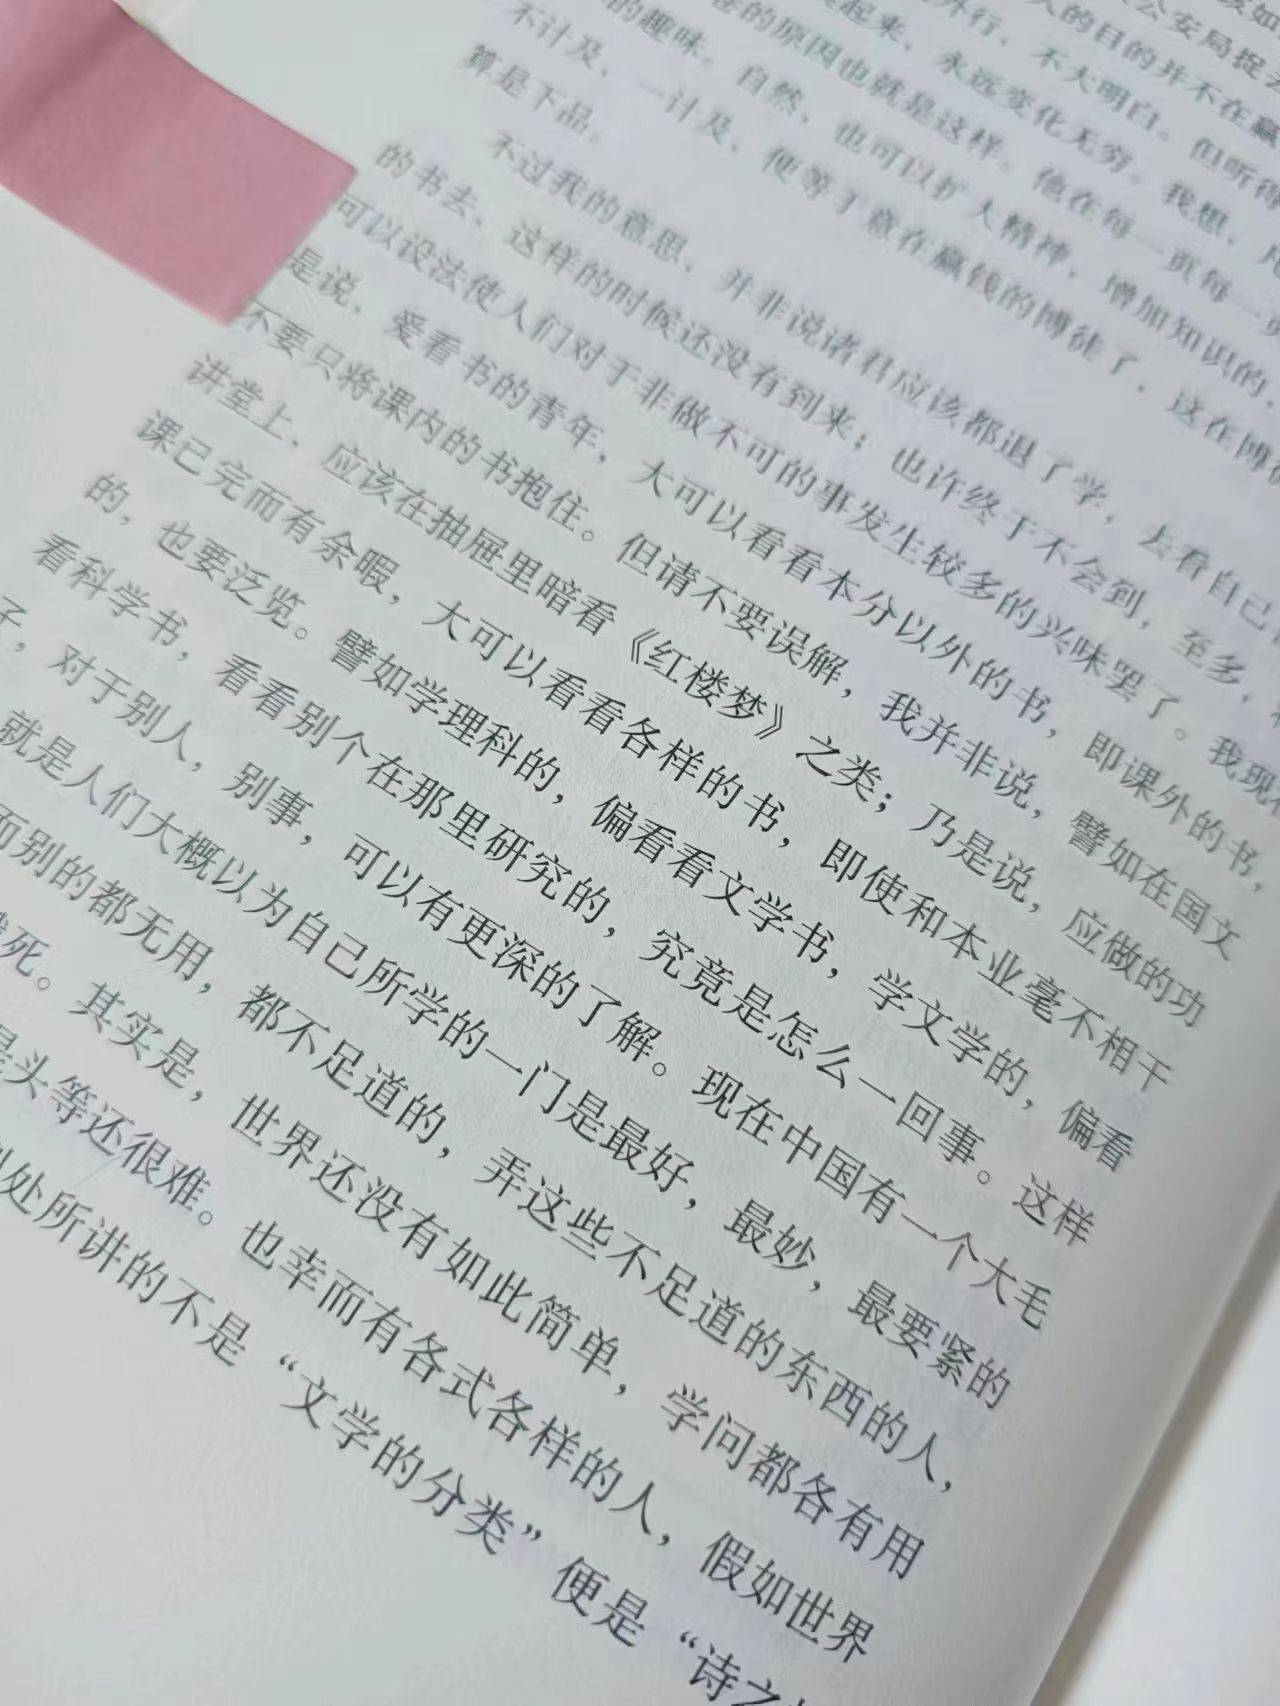 该如
公安局捉去
人的目的并不在赢
外行，不大明白。但听得
起来，永远变化无穷。我想，凡
的原因也就是这样。他在每一页每一
的趣味。自然，也可以扩大精神，增加知识的，
不计及，一计及，便等于意在赢钱的博徒了，这在博徒
算是下品。
不过我的意思，并非说诸君应该都退了学，去看自己
的书去，这样的时候还没有到来；也许终于不会到，至多，
可以设法使人们对于非做不可的事发生较多的兴味罢了。我现在
是说，爱看书的青年，大可以看看本分以外的书，即课外的书，
不要只将课内的书抱住。但请不要误解，我并非说，譬如在国文
讲堂上，应该在抽屉里暗看《红楼梦》之类；乃是说，应做的功
课已完而有余暇，大可以看看各样的书，即使和本业毫不相干
的，也要泛览。譬如学理科的，偏看看文学书，学文学的，偏看
看科学书，看看别个在那里研究的，究竟是怎么一回事。这样
子，对于别人，别事，可以有更深的了解。现在中国有一个大毛
就是人们大概以为自己所学的一门是最好，最妙，最要紧的
而别的都无用，都不足道的，弄这些不足道的东西的人，
死。其实是，世界还没有如此简单，学问都各有用
头等还很难。也幸而有各式各样的人，假如世界
处所讲的不是“文学的分类”便是“诗之